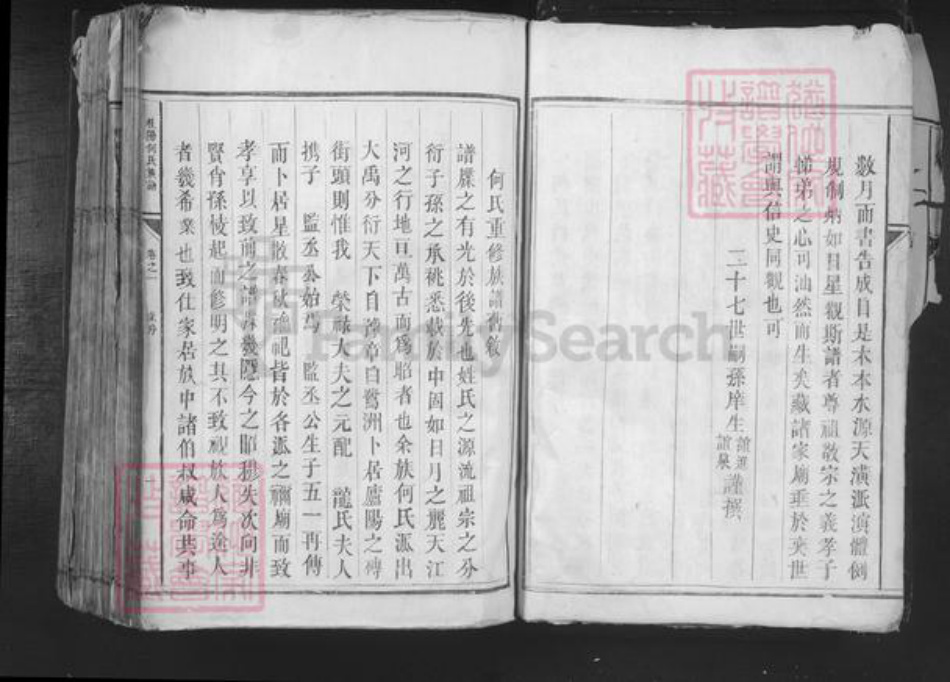 數月而書告成目是木本水源天潢派演體例
規制炳如日星觀斯譜者尊祖敬宗之義孝子
悌弟之心可油然而生矣藏諸家廟垂於奕世
謂與信史同觀也可
二十七世嗣孫庠生 謹撰
何氏重修族譜舊敘
譜牒之有光於後先也姓氏之源流祖宗之分
衍子孫之承祧悉載於中固如日月之麗天江
河之行地亘萬古而為昭者也余族何氏派出
大禹分衍天下自 章白鷺洲卜居廬陽之磚
街頭則惟我 榮祿大夫之元配 龍氏夫人
携子 監丞公始焉 監丞公生子五一再傳
而卜居星散春秋 祀皆於各派之禰廟而致
孝享以致前之譜 幾隱今之昭穆失次向非
賢肖孫 起而修明之其不致視族人為途人
者幾希業也致仕家居族中諸伯叔咸命共事
何氏族譜
卷之一
FamilySearch